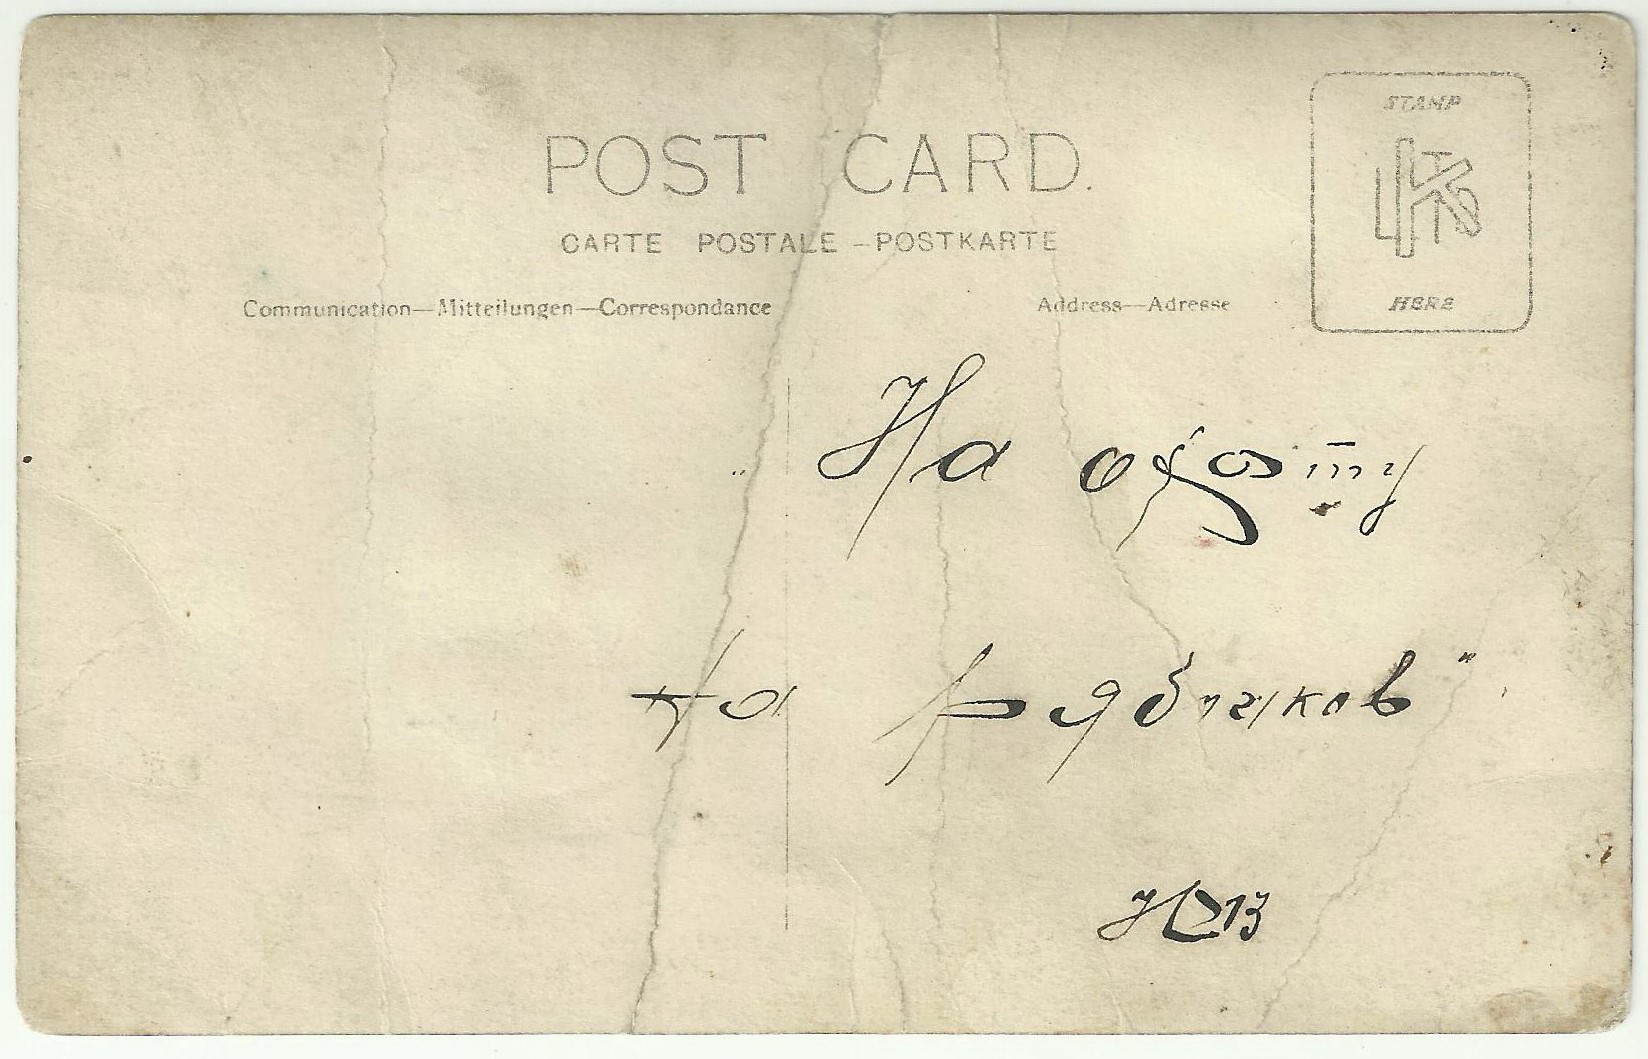 POST CARD.
CARTE POSTALE – POSTKARTE
Communication—Mitteilungen—Correspondance
Address—Adresse
STAMP
HERE
„ На охоту
на рябчиков"